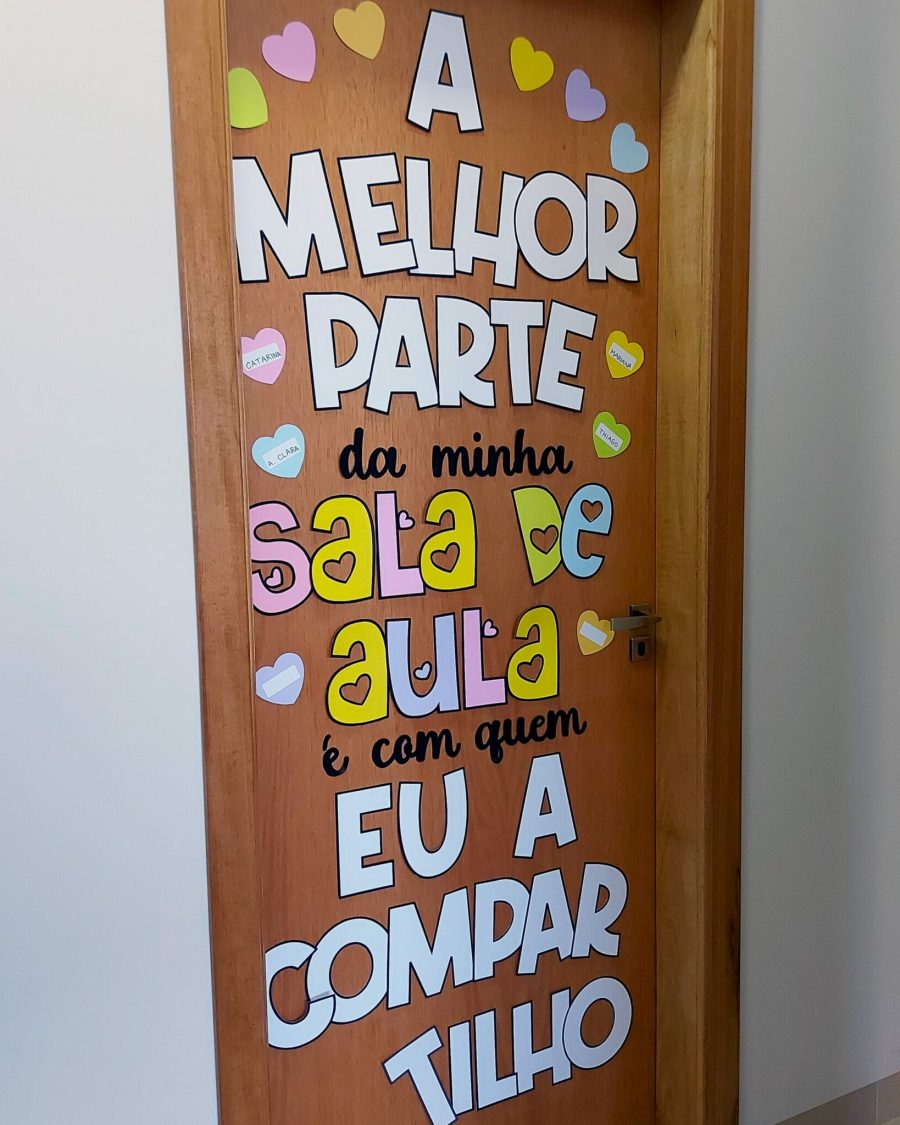 A
MELHOR
PARTE
CATARINA
MARIANA
A. CLARA
THIAGO
da minha
SALA DE
AULA
é com quem
EU A
COMPAR
TILHO